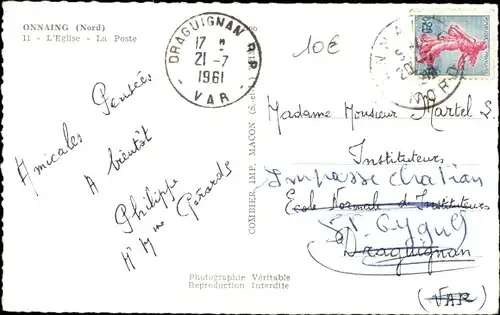 ONNAING (Nord)
11 - L'Eglise - La Poste
DRAGUIGNAN R.P.
17 H
21 - 7
1961
VAR
10€
NORD
Amicales Pensées
A bientôt
Philippe
Mr Mme Gérards
COMBIER IMP. MACON
Madame Monsieur Martel L.
Instituteurs
Impasse
Ecole Normale d'Instituteurs
à Draguignan
(VAR)
Photographie Véritable
Reproduction Interdite